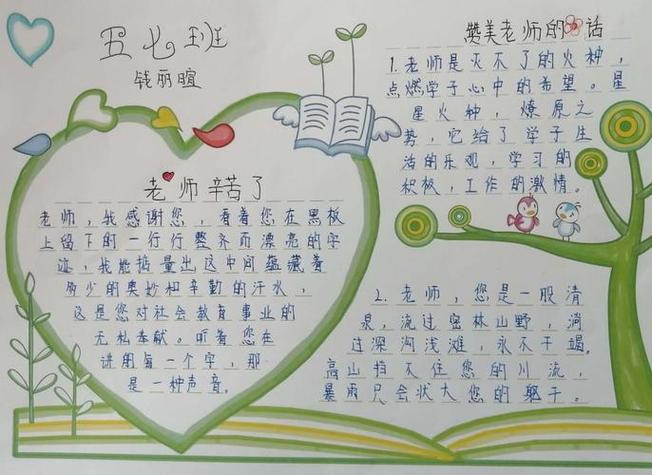 五七班
钱丽暄
老师辛苦了
老师，我感谢您，看着您在黑板
上留下的一行行整齐而漂亮的字
迹，我能掂量出这中间蕴藏着
多少的奥妙和辛勤的汗水，
这是您对社会教育事业的
无私奉献。听着您在
讲的每一个字，那
是一种声音。
赞美老师的话
1.老师是灭不了的火种，
点燃学子心中的希望。星
星火种，燎原之
势，它给了学子生
活的乐观，学习的
积极，工作的激情。
2.老师，您是一股清
泉，流过密林山野，淌
过深沟浅滩，永不干竭。
高山挡不住您的川流，
暴雨只会状大您的躯干。